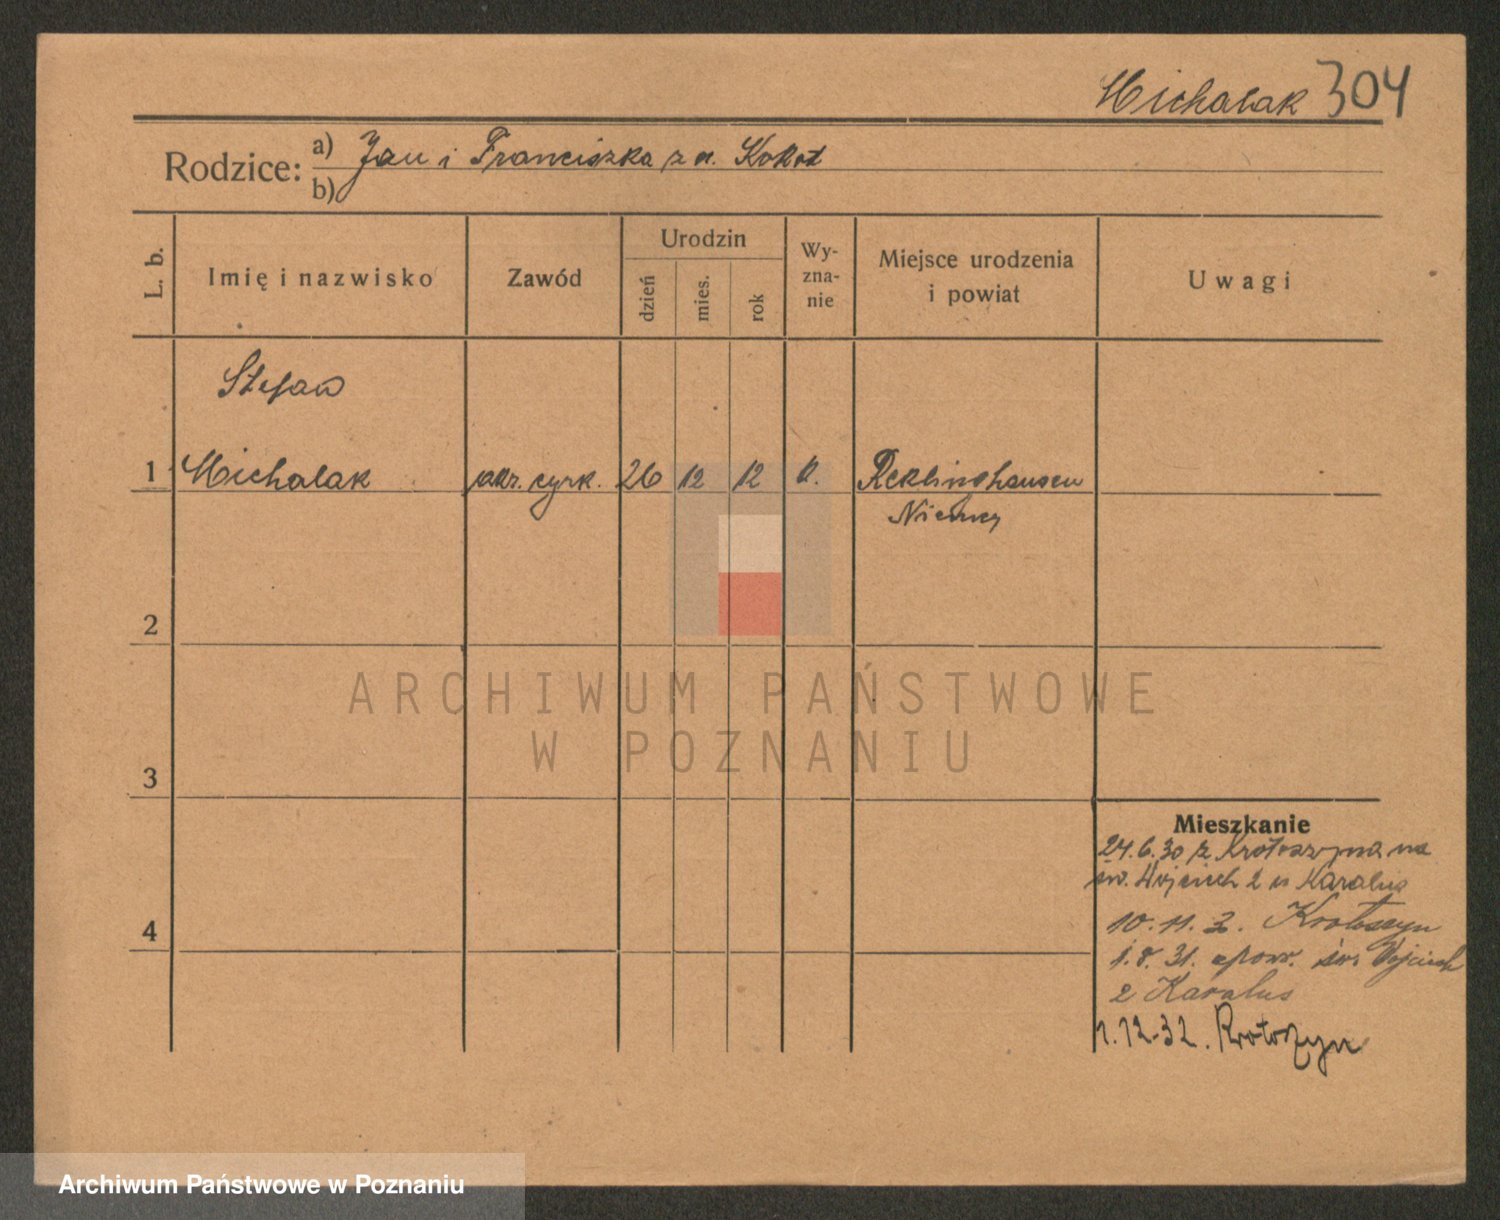 Michalak 304
Rodzice: a) Jan i Franciszka z d. Kokot
b)
L. b.
Imię i nazwisko
Zawód
Urodzin
dzień
mies.
rok
Wy-
zna-
nie
Miejsce urodzenia
i powiat
Uwagi
Stefan
1 Michalak cyrk. 26 12 12 Recklinghausen
Niemcy
2
3
4
ARCHIWUM PAŃSTWOWE
W POZNANIU
Mieszkanie
24.6.30 z Krotoszyna na
św. Wojciech 2 u Karalus
10.11. Krotoszyn
1.8.31. spowr. św. Wojciech
2 Karalus
1.12-32. Krotoszyn
Archiwum Państwowe w Poznaniu